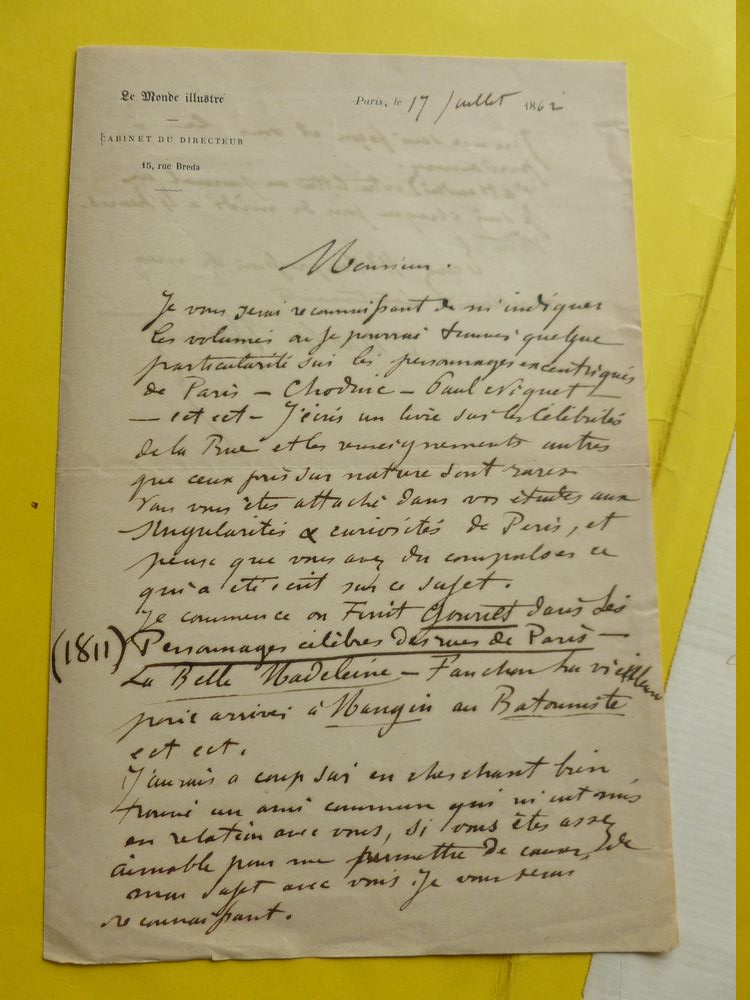 Le Monde illustré
CABINET DU DIRECTEUR
15, rue Breda
Paris, le 17 Juillet 1862
Monsieur.
Je vous serai reconnaissant de m'indiquer
les volumes ou je pourrai trouver quelque
particularité sur les personnages excentriques
de Paris – Chodruc – Paul Niquet –
– ect ect – J'écris un livre sur les Célébrités
de la Rue et les renseignements autres
que ceux pris sur nature sont rares
Vous vous êtes attaché dans vos études aux
singularités & curiosités de Paris, et
pense que vous avez du compulser ce
qui a été écrit sur ce sujet.
Je commence ou Finit Gouriet dans Les
(1811) Personnages célèbres des rues de Paris –
La Belle Madeleine – Fanchon la vielleuse
pour arriver à Mangin au Batonniste
ect ect.
J'aurais a coup sur en cherchant bien
trouvé un ami commun qui m'eut mis
en relation avec vous, si vous êtes assez
aimable pour me permettre de causer de
mon sujet avec vous. Je vous serai
reconnaissant.